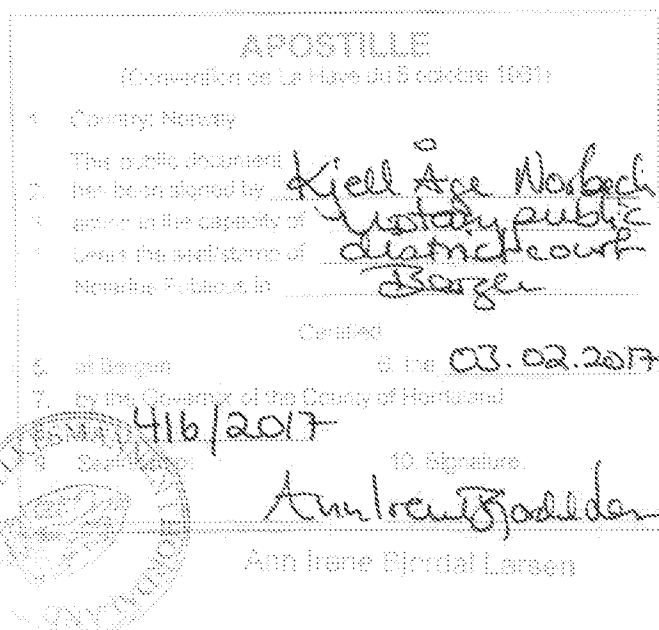 APOSTILLE
(Convention de La Haye du 5 octobre 1961)
1. Country: Norway
This public document
2. has been signed by Kjell Åge Norbech
3. acting in the capacity of notary public
4. bears the seal/stamp of district court
Notarius Publicus in Bergen
Certified
5. at Bergen 6. the 03.02.2017
7. by the Governor of the County of Hordaland
416/2017
9. Seal/stamp: 10. Signature:
Ann Irene Bjerdal Larsen